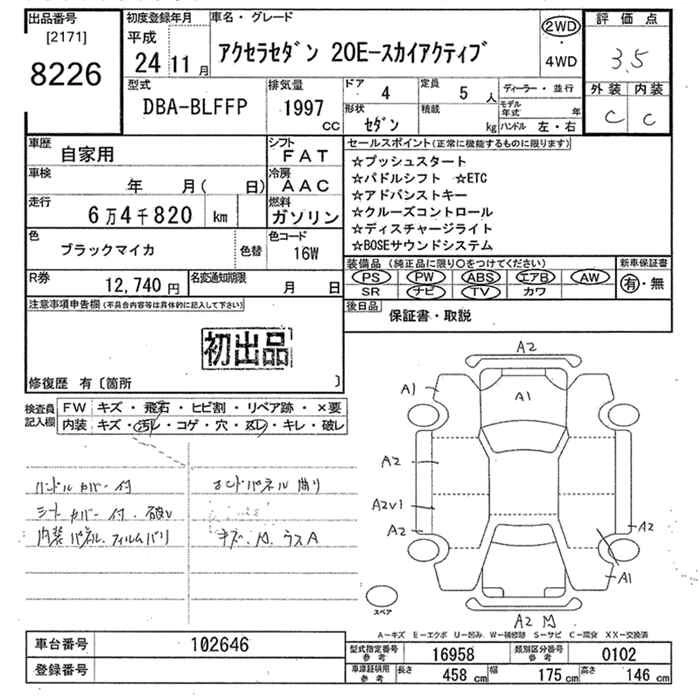 出品番号
[2171]
8226
初度登録年月
平成
24 11 月
車名・グレード
アクセラセダン 20E-スカイアクティブ
2WD
・
4WD
評価点
3.5
外装 内装
C C
型式
DBA-BLFFP
排気量
1997
CC
ドア 4
定員 5 人
形状
セダン
積載
kg
ディーラー・並行
モデル年式 年
ハンドル 左・右
車歴
自家用
シフト
FAT
車検
年 月( 日)
冷房
AAC
走行
6万4千820 km
燃料
ガソリン
色
ブラックマイカ
色替
色コード
16W
R券
12,740 円
名変通知期限
月 日
セールスポイント(正常に機能するものに限ります)
☆プッシュスタート
☆パドルシフト ☆ETC
☆アドバンストキー
☆クルーズコントロール
☆ディスチャージライト
☆BOSEサウンドシステム
装備品(純正品に限り○をつけてください)
PS PW ABS エアB AW
SR ナビ TV カワ
新車保証書
有・無
後日品
保証書・取説
注意事項申告欄(不具合内容等は具体的に記入して下さい)
初出品
修復歴 有〔箇所 〕
検査員記入欄
FW キズ・飛石・ヒビ割・リペア跡・×要
内装 キズ・汚レ・コゲ・穴・スレ・キレ・破レ
ハンドルカバー付
シートカバー付・破レ
内装パネル・フィルムバリ
エンドパネル曲り
キズ・凹・ラスA
A2
A1
A1
A2
A2V1
A2
A2
A1
A2
スペア
A-キズ E-エクボ U-凹み W-補修跡 S-サビ C-腐食 XX-交換済
車台番号 102646
登録番号
型式指定番号参考 16958
類別区分番号参考 0102
車庫証明用参考 長さ 458 cm 幅 175 cm 高さ 146 cm